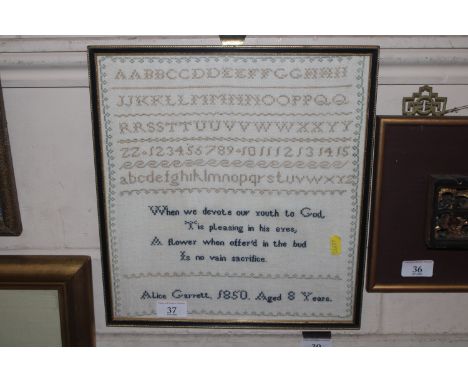 AABBCCDDEEFFGGHHH
IJJKKLLMMNNNOOPPQQ
RRSSTTUUVVWWXXYY
ZZ 123456789 10 11 12 13 14 15
abcdefghiklmnopqrstuvwxyz
When we devote our youth to God,
'T is pleasing in his eyes,
A flower when offer'd in the bud
Is no vain sacrifice.
Alice Garrett, 1850. Aged 8 Years.
37
36
39